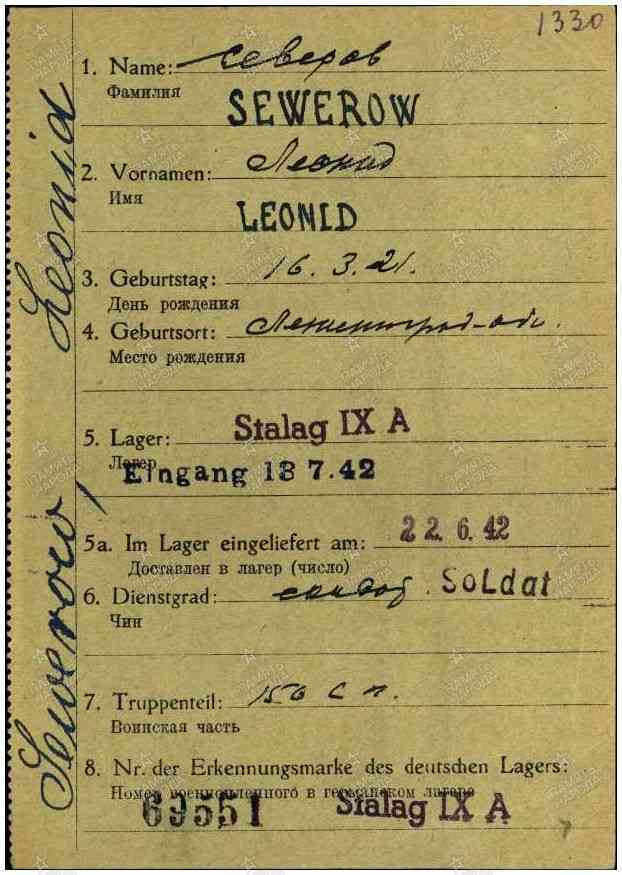 1330
1. Name: Северов
Фамилия
SEWEROW
2. Vornamen: Леонид
Имя
LEONID
3. Geburtstag: 16. 3. 21.
День рождения
4. Geburtsort: Ленинград-обл.
Место рождения
5. Lager: Stalag IX A
Лагер
Eingang 18 7.42
5a. Im Lager eingeliefert am: 22. 6. 42
Доставлен в лагер (число)
6. Dienstgrad: Soldat
Чин
7. Truppenteil: 150 с п.
Воинская часть
8. Nr. der Erkennungsmarke des deutschen Lagers:
Номер военнопленного в германском лагере
69551 Stalag IX A
Sewerow, Leonid